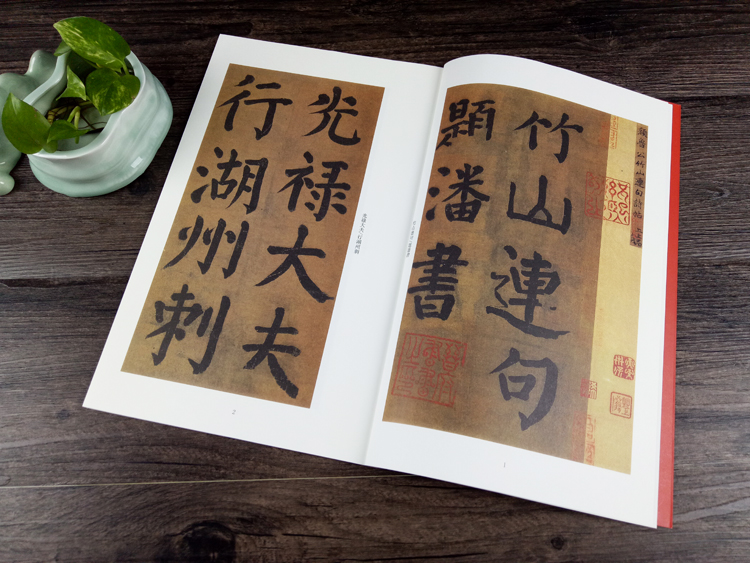 竹山連句
題潘書
竹山連句 題潘書
1
光禄大夫
行湖州刺
光禄大夫 行湖州刺
2